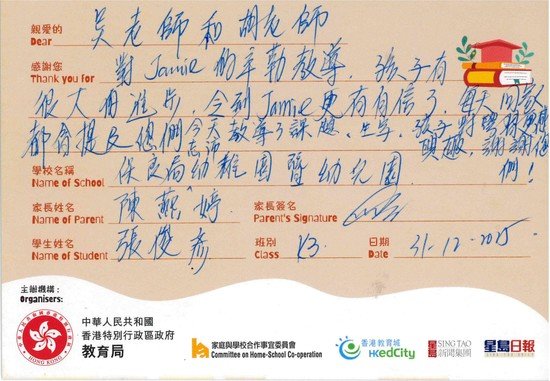 親愛的 吳老師和胡老師
Dear
感謝您 對Jamie的辛勤教導,孩子有
Thank you for
很大的進步,令到Jamie更有自信了,每天回家
都會提及您們今天教導了課題,
孩子對學習更感興趣,謝謝您們!
學校名稱 保良局幼稚園暨幼兒園
Name of School
家長姓名 陳燕婷 家長簽名
Name of Parent Parent's Signature
學生姓名 張俊彥 班別 K3 日期 31-12-2025
Name of Student Class Date
主辦機構:
Organisers:
中華人民共和國
香港特別行政區政府
教育局
HONG KONG
家庭與學校合作事宜委員會
Committee on Home-School Co-operation
香港教育城
HKedCity
星島 SING TAO
新聞集團
星島日報